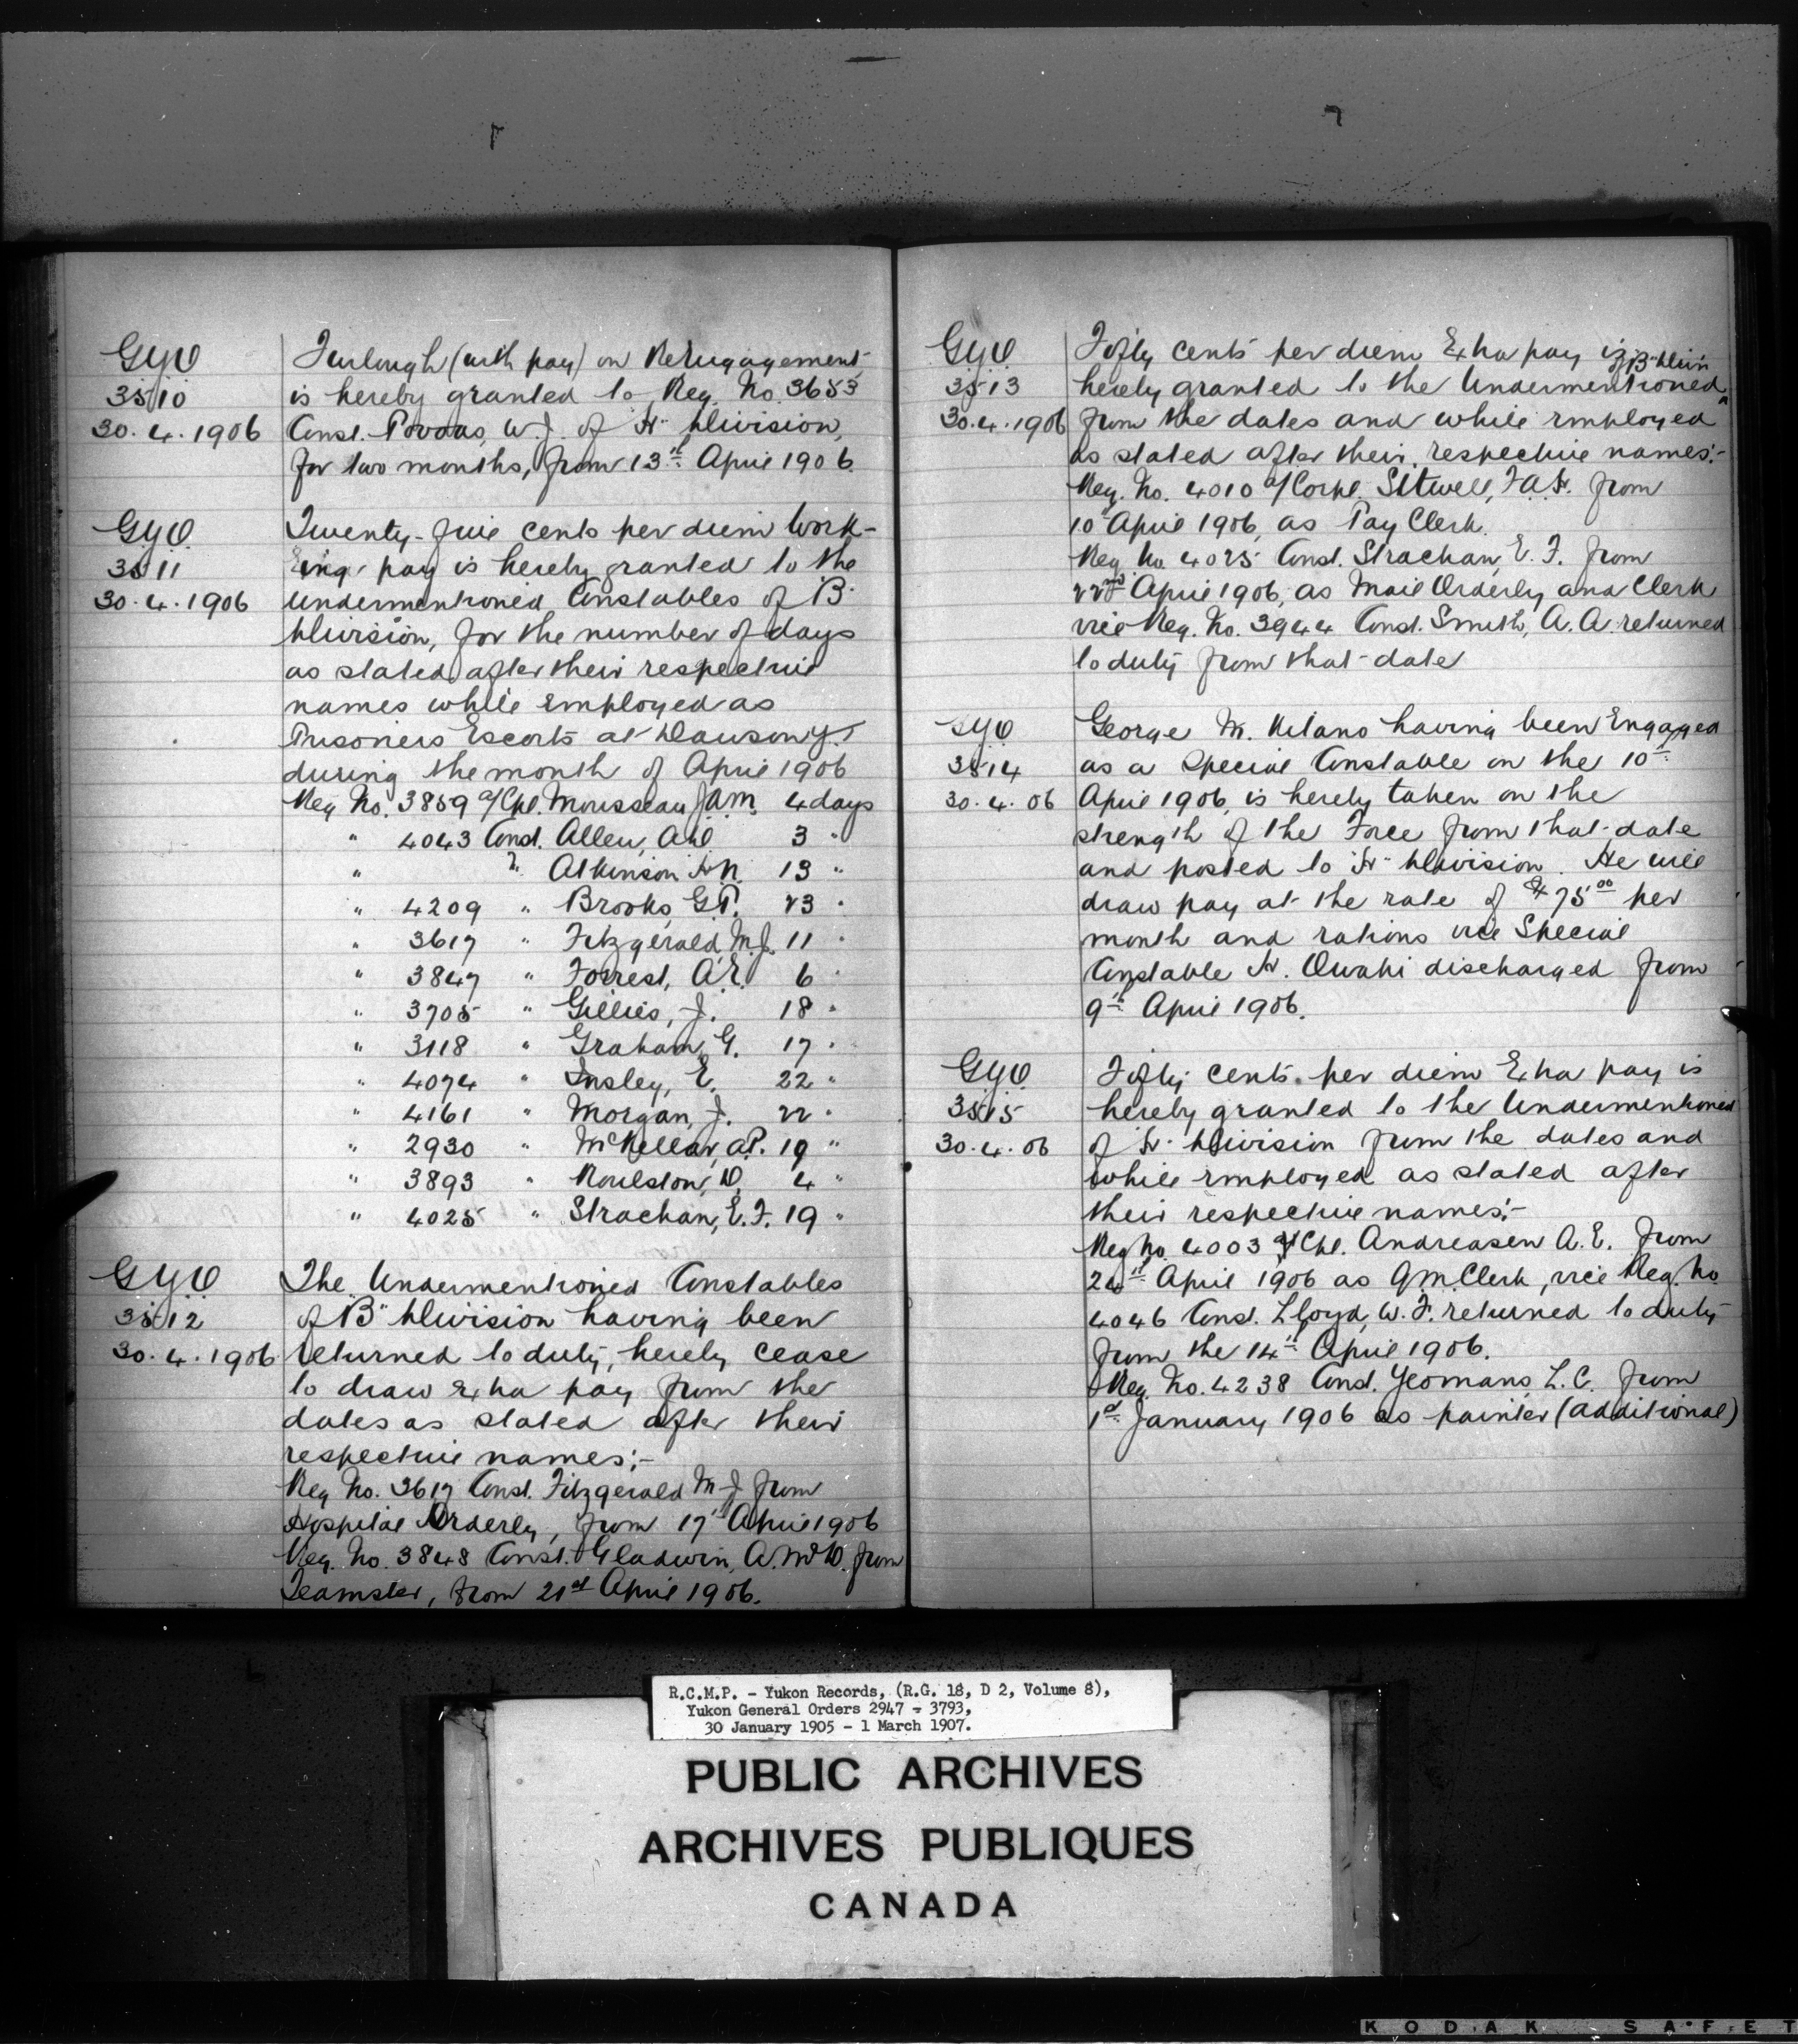 G.Y.O
3510
30.4.1906
Furlough (with pay) on Reengagement
is hereby granted to Reg. No. 3653
Const. W.J. of "H" Division,
for two months, from 13th April 1906
G.Y.O.
3511
30.4.1906
Twenty-five cents per diem Work-
ing pay is hereby granted to the
undermentioned Constables of "B"
Division, for the number of days
as stated after their respective
names while employed as
Prisoners Escorts at Dawson Y.T
during the month of April 1906
Reg No. 3859 a/Cpl. Mousseau J.A.M. 4 days
" 4043 Const. Allen, 3 "
" " Atkinson H.N. 13 "
" 4209 " Brooks, G.P. 23 "
" 3617 " Fitzgerald, M.J. 11 "
" 3847 " Forrest, A.E. 6 "
" 3705 " Gillies, J. 18 "
" 3118 " Graham, G. 17 "
" 4074 " Insley, E. 22 "
" 4161 " Morgan, J. 22 "
" 2930 " McKellar, A.P. 19 "
" 3893 " Roulston, D. 4 "
" 4025 " Strachan, E.F. 19 "
G.Y.O
3512
30.4.1906
The Undermentioned Constables
of "B" Division having been
returned to duty, hereby cease
to draw Extra pay from the
dates as stated after their
respective names:-
Reg No. 3617 Const. Fitzgerald M.J. from
Hospital Orderly, from 17th April 1906
Reg. No. 3848 Const. Gladwin, A. from
Teamster, from 21st April 1906.
G.Y.O.
3513
30.4.1906
Fifty cents per diem Extra pay is
of "B" Divi'n
hereby granted to the Undermentioned
from the dates and while employed
as stated after their respective names:-
Reg. No. 4010 a/Corpl. Sitwell, F.A.H. from
10th April 1906, as Pay Clerk.
Reg No. 4025 Const. Strachan, E.F. from
22nd April 1906, as Mail Orderly and Clerk
vice Reg. No. 3944 Const. Smith, A.A. returned
to duty from that date
G.Y.O
3514
30.4.06
George M. having been Engaged
as a Special Constable on the 10th
April 1906, is hereby taken on the
strength of the Force from that date
and posted to "H" Division. He will
draw pay at the rate of $75.00 per
month and rations vice Special
Constable H. discharged from
9th April 1906.
G.Y.O.
3515
30.4.06
Fifty cents per diem Extra pay is
hereby granted to the Undermentioned
of "H" Division from the dates and
while employed as stated after
their respective names:-
Reg No. 4003 a/Cpl. Andreasen A.E. from
24th April 1906 as Q.M. Clerk, vice Reg. No
4046 Const. Lloyd, W.F. returned to duty
from the 14th April 1906.
Reg. No. 4238 Const. Yeomans, L.C. from
1st January 1906 as painter (additional)
R.C.M.P. - Yukon Records, (R.G. 18, D 2, Volume 8),
Yukon General Orders 2947 - 3793,
30 January 1905 - 1 March 1907.
PUBLIC ARCHIVES
ARCHIVES PUBLIQUES
CANADA
KODAK SAFET